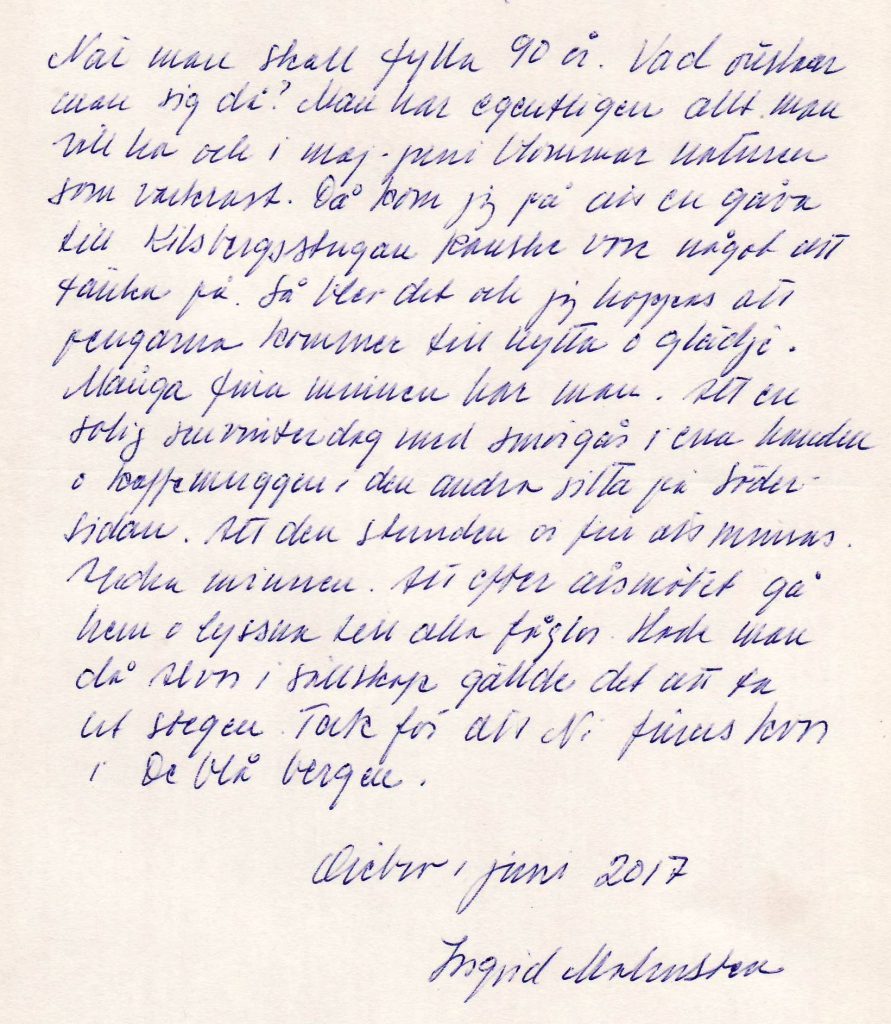 När man skall fylla 90 år. Vad önskar
man sig då? Man har egentligen allt man
vill ha och i maj-juni blommar naturen
som vackrast. Då kom jag på att en gåva
till Kilsbergsstugan kanske vore något att
tänka på. Så blev det och jag hoppas att
pengarna kommer till nytta o glädje.
Många fina minnen har man. Att en
solig senvinterdag med smörgås i ena handen
o kaffemuggen i den andra sitta på Söder-
sidan. Att den stunden är fin att minnas.
minnen. Att efter årsmötet gå
hem o lyssna till alla fåglar. Hade man
då Alvar i sällskap gällde det att ta
ut stegen. Tack för att Ni finns kvar
i De blå bergen.
Örebro i juni 2017
Ingrid Malmsten